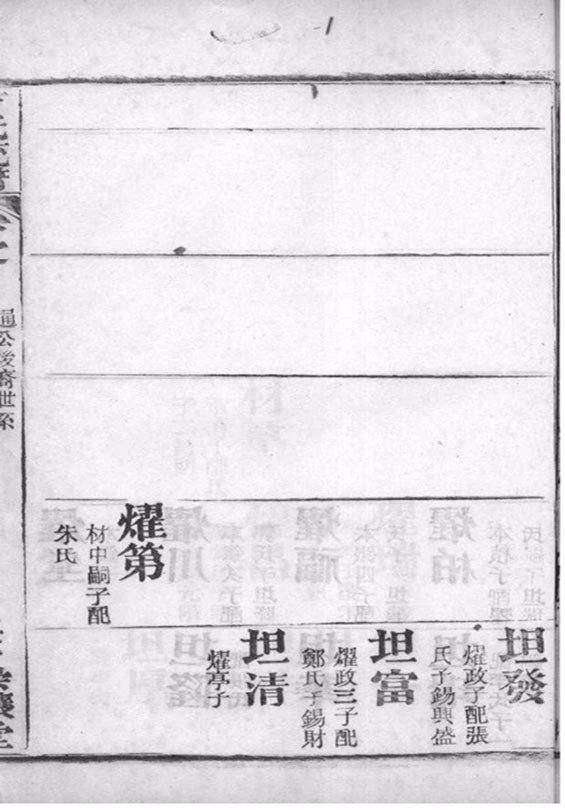 坦發
燿政子配張
氏子錫興盛
坦富
燿政三子配
鄭氏子錫財
坦清
燿亭子
燿第
材中嗣子配
朱氏
公後裔世系